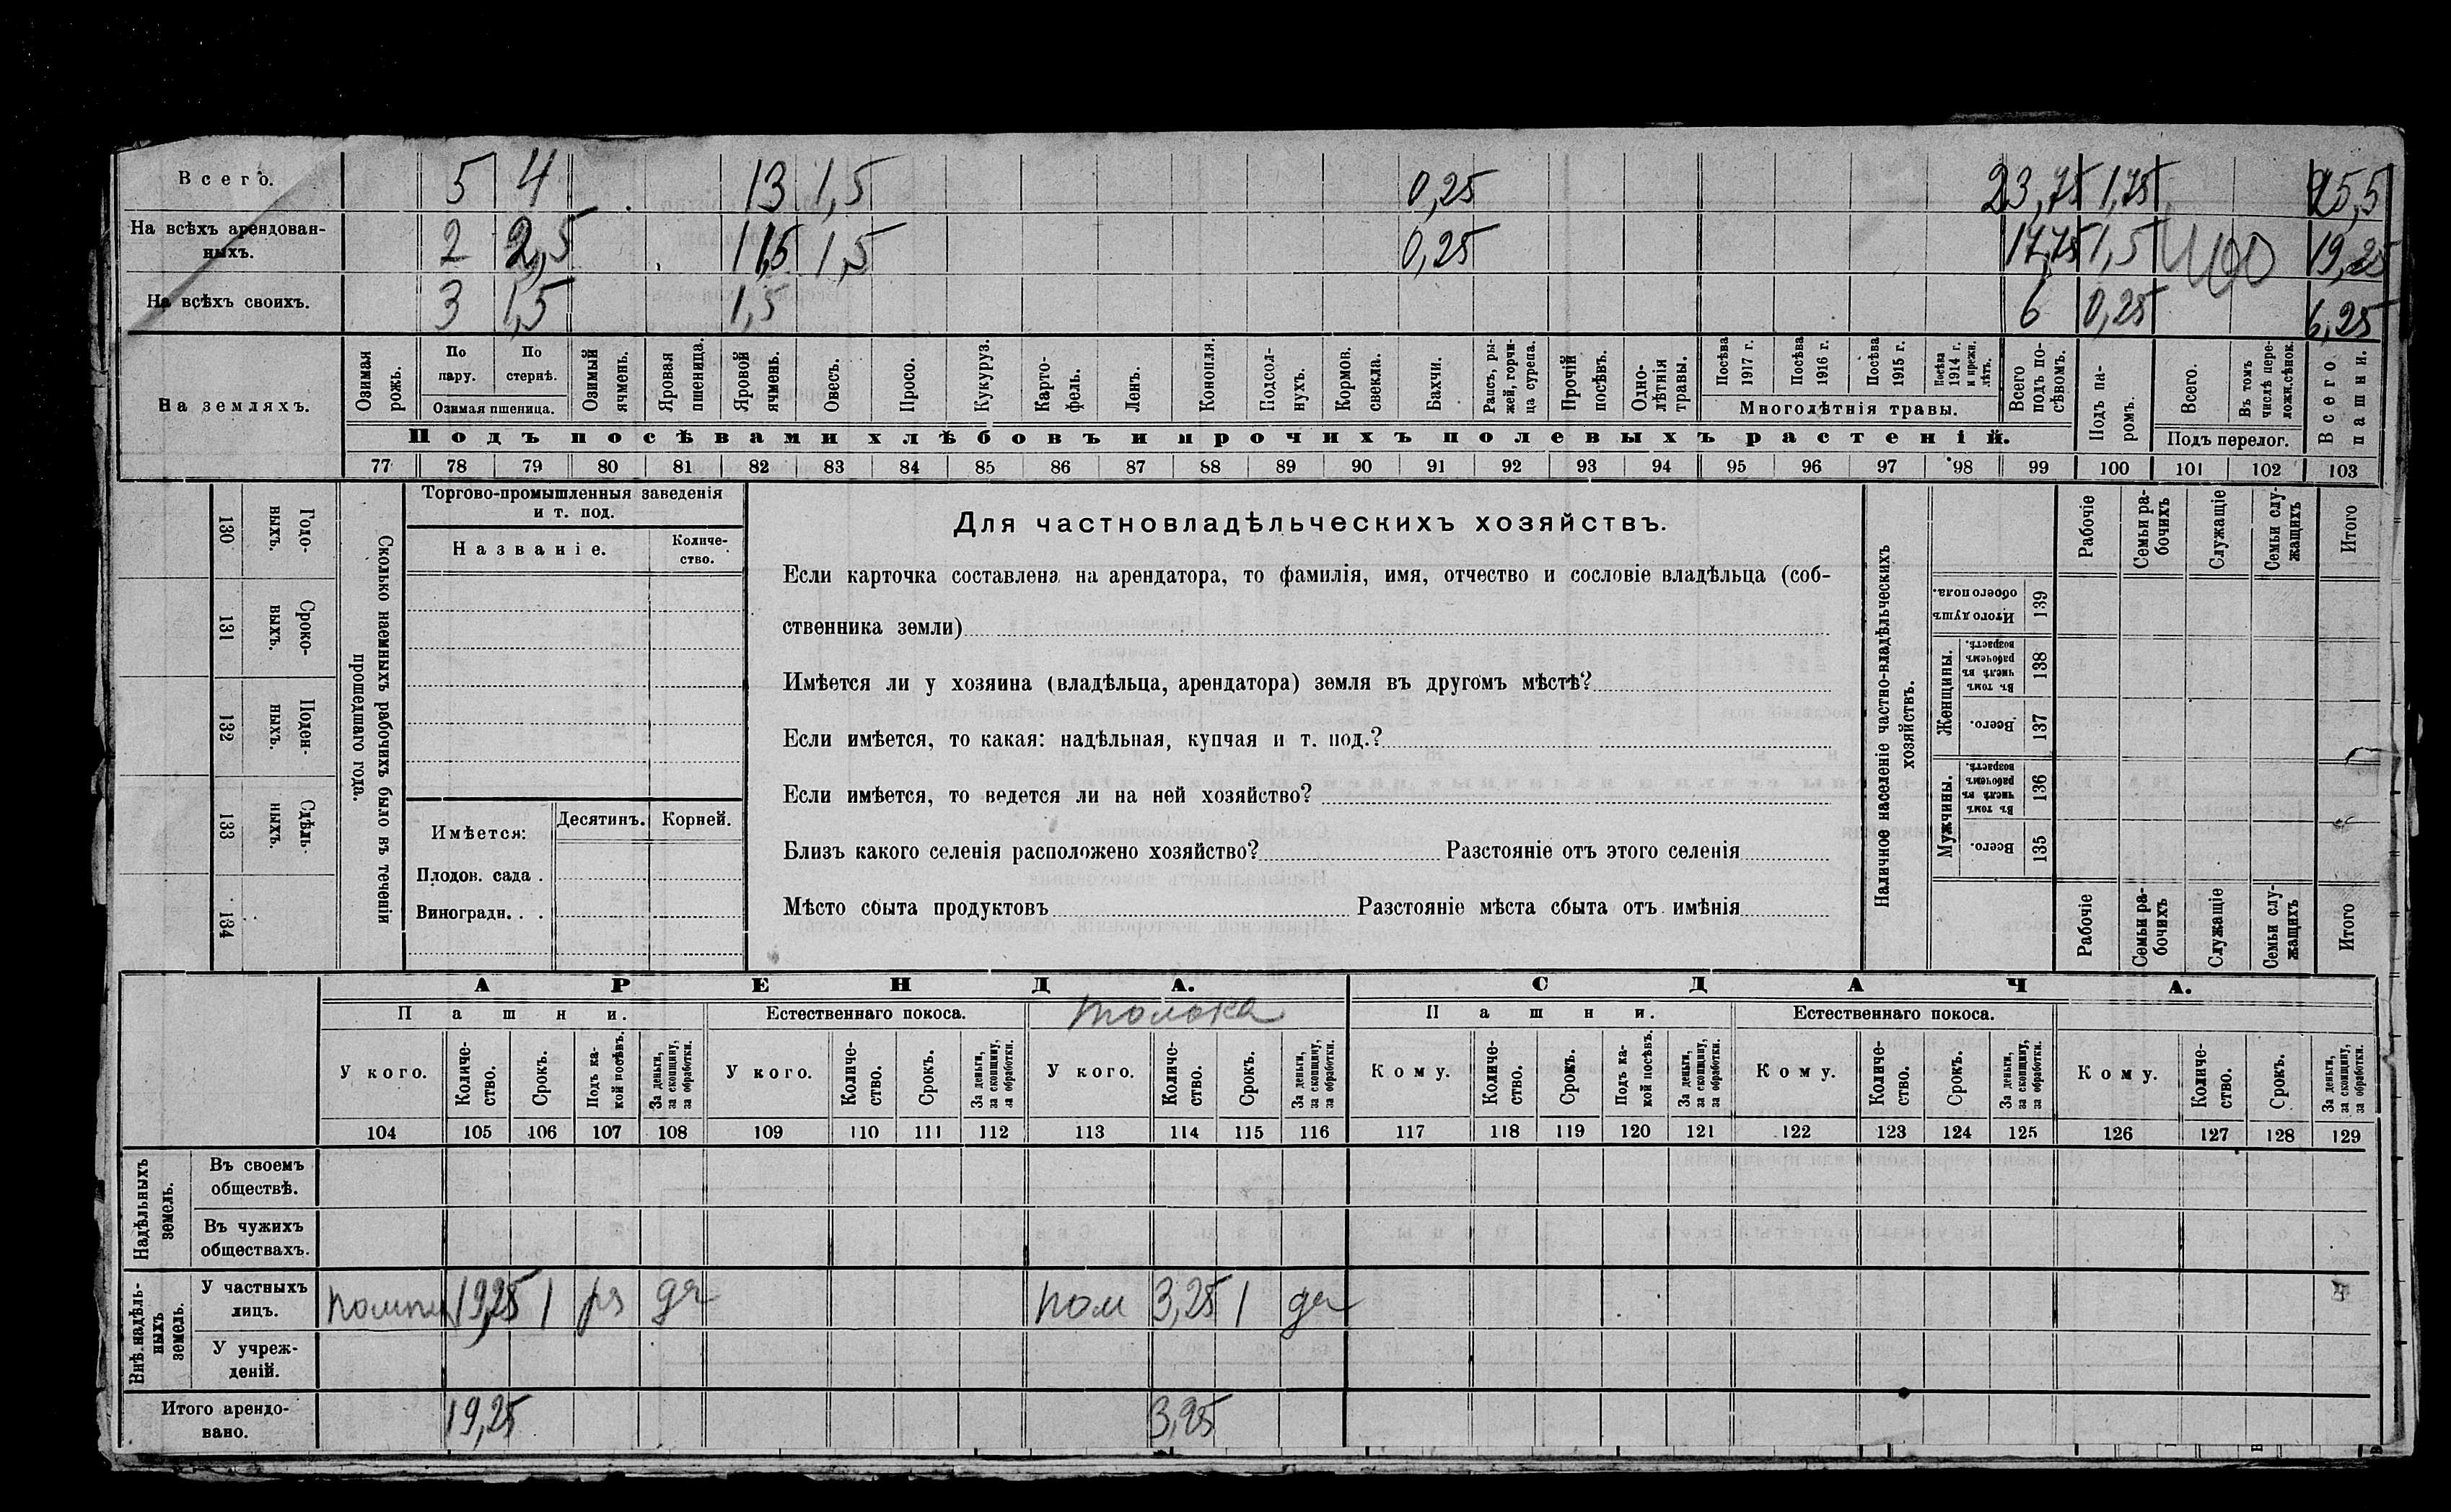 Всего. 5 4 13 1,5 0,25 23,75 1,75 25,5
На всѣхъ арендован-
ныхъ. 2 2,5 11,5 1,5 0,25 17,75 1,5 19,25
На всѣхъ своихъ. 3 1,5 1,5 6 0,25 6,25
На земляхъ.
Озимая рожь.
По пару.
По стернѣ.
Озимая пшеница.
Озимый ячмень.
Яровая пшеница.
Яровой ячмень.
Овесъ.
Просо.
Кукуруз.
Карто-
фель.
Ленъ.
Конопля.
Подсол-
нухъ.
Кормов. свекла.
Бахчи.
Рапсъ, ры-
жей, горчи-
ца сурепа.
Прочій посѣвъ.
Одно-
лѣтнія травы.
Посѣва 1917 г.
Посѣва 1916 г.
Посѣва 1915 г.
Посѣва 1914 г. и прежн. лѣтъ.
Многолѣтнія травы.
Всего подъ по-
сѣвомъ.
Подъ па-
ромъ.
Всего.
Въ томъ числѣ пере-
лож. сѣнок.
Подъ перелог.
Всего пашни.
Подъ посѣвами хлѣбовъ и прочихъ полевыхъ растеній.
77 78 79 80 81 82 83 84 85 86 87 88 89 90 91 92 93 94 95 96 97 98 99 100 101 102 103
130 Годо-
выхъ.
131 Сроко-
выхъ.
132 Поден-
ныхъ.
133 Сдѣль-
ныхъ.
134
Сколько наемныхъ рабочихъ было въ теченіи
прошедшаго года.
Торгово-промышленныя заведенія
и т. под.
Названіе.
Количе-
ство.
Имѣется:
Десятинъ. Корней.
Плодов. сада .
Виноградн. . .
Для частновладѣльческихъ хозяйствъ.
Если карточка составлена на арендатора, то фамилія, имя, отчество и сословіе владѣльца (соб-
ственника земли)
Имѣется ли у хозяина (владѣльца, арендатора) земля въ другомъ мѣстѣ?
Если имѣется, то какая: надѣльная, купчая и т. под.?
Если имѣется, то ведется ли на ней хозяйство?
Близъ какого селенія расположено хозяйство? Разстояніе отъ этого селенія
Мѣсто сбыта продуктовъ Разстояніе мѣста сбыта отъ имѣнія
Наличное населеніе частно-владѣльческихъ
хозяйствъ.
Рабочіе
Семьи ра-
бочихъ
Служащіе
Семьи слу-
жащихъ
Итого
Итого душъ обоего пола. 139
Женщины.
Въ томъ числѣ въ рабочемъ возрастѣ. 138
Всего. 137
Мужчины.
Въ томъ числѣ въ рабочемъ возрастѣ. 136
Всего. 135
Рабочіе
Семьи ра-
бочихъ
Служащіе
Семьи слу-
жащихъ
Итого
АРЕНДА. СДАЧА.
Пашни. Естественнаго покоса. толока Пашни. Естественнаго покоса.
У кого.
Количе-
ство.
Срокъ.
Подъ ка-
кой посѣвъ.
За деньги,
за скопщину,
за обработки.
У кого.
Количе-
ство.
Срокъ.
За деньги,
за скопщину,
за обработки.
У кого.
Количе-
ство.
Срокъ.
За деньги,
за скопщину,
за обработки.
Кому.
Количе-
ство.
Срокъ.
Подъ ка-
кой посѣвъ.
За деньги,
за скопщину,
за обработки.
Кому.
Количе-
ство.
Срокъ.
За деньги,
за скопщину,
за обработки.
Кому.
Количе-
ство.
Срокъ.
За деньги,
за скопщину,
за обработки.
104 105 106 107 108 109 110 111 112 113 114 115 116 117 118 119 120 121 122 123 124 125 126 127 128 129
Надѣльныхъ
земель.
Въ своемъ
обществѣ.
Въ чужихъ
обществахъ.
Внѣ.надѣль-
ныхъ
земель.
У частныхъ
лицъ. 19,25 1 пом 3,25 1
У учреж-
деній.
Итого арендо-
вано. 19,25 3,25